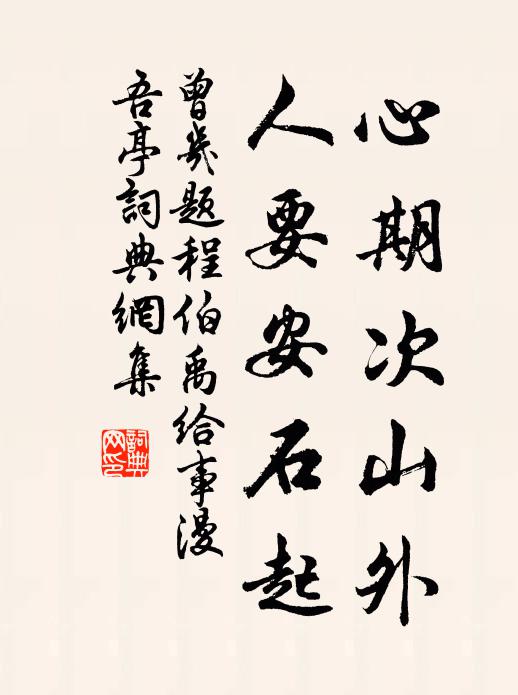 心期次山外
人要安石起
曾幾題程伯禹給事漫
吾亭詞典網集
詞典网印